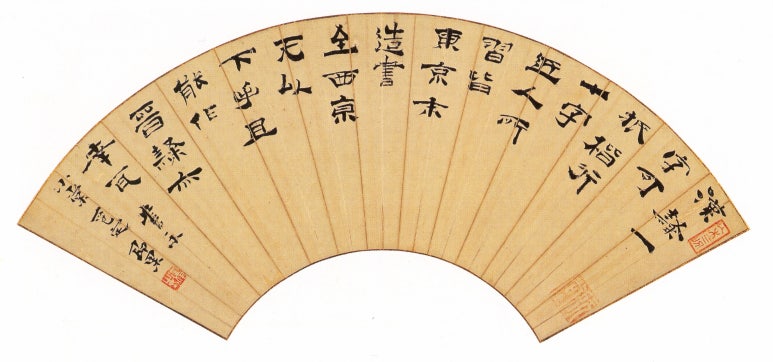 漢隸一
字可
抵楷行
十字
近人所
習皆
東京末
造書
至西京
无以
下乎且
能作
晉隸亦